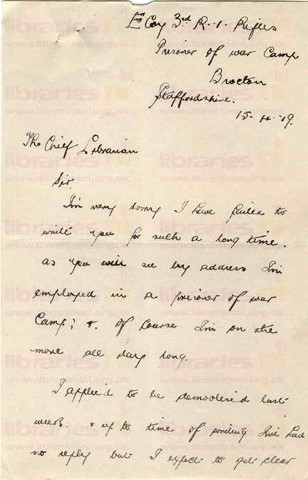 E Coy 3rd R. I. Rifles
Prisoner of war Camp
Brocton
Staffordshire.
15-4-19.
The Chief Librarian
Sir.
I'm very sorry I have failed to
write you for such a long time.
as you will see by address I'm
employed in a prisoner of war
Camp; & of Course I'm on the
move all day long.
I applied to be demobolised last
week. & up to time of writing I've had
no reply but I expect to get clear